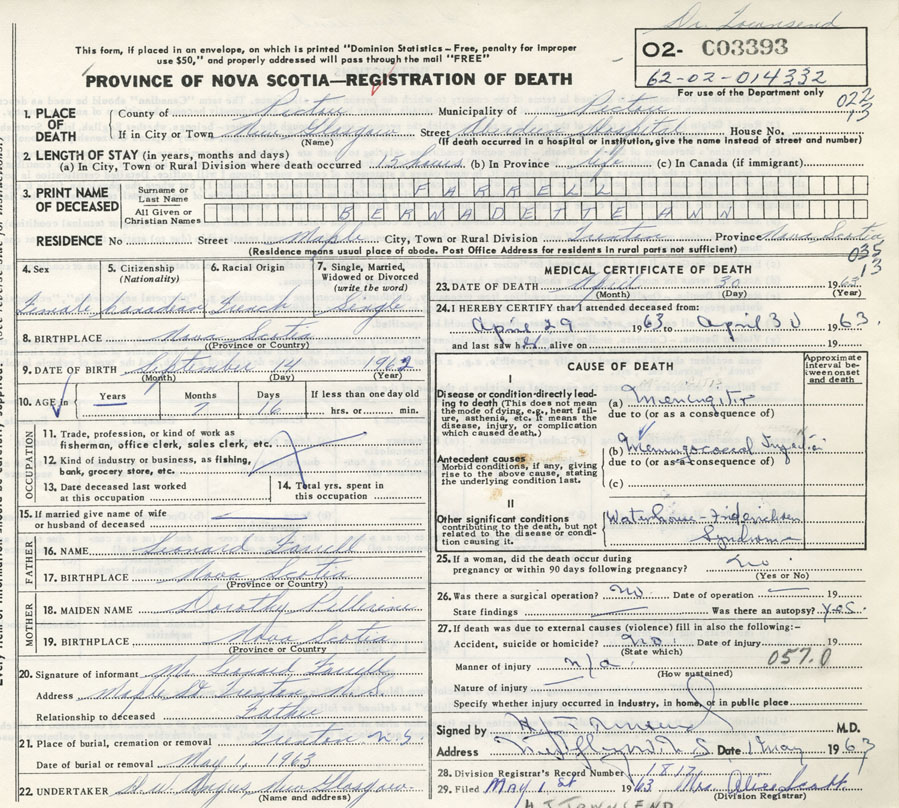 Dr. Townsend
This form, if placed in an envelope, on which is printed "Dominion Statistics – Free, penalty for improper
use $50," and properly addressed will pass through the mail "FREE"
O2- C03393
62-02-014332
For use of the Department only
PROVINCE OF NOVA SCOTIA—REGISTRATION OF DEATH
022
13
1. PLACE OF DEATH
County of Pictou Municipality of Pictou
If in City or Town New Glasgow Street Aberdeen Hospital House No.
(Name) (If death occurred in a hospital or institution, give the name instead of street and number)
2. LENGTH OF STAY (in years, months and days)
(a) In City, Town or Rural Division where death occurred 15 hours (b) In Province life (c) In Canada (if immigrant)
3. PRINT NAME OF DECEASED
Surname or Last Name FARRELL
All Given or Christian Names BERNADETTE ANN
RESIDENCE No Street Maple City, Town or Rural Division Trenton Province Nova Scotia
(Residence means usual place of abode. Post Office Address for residents in rural parts not sufficient)
035
13
4. Sex
Female
5. Citizenship (Nationality)
Canadian
6. Racial Origin
French
7. Single, Married, Widowed or Divorced (write the word)
Single
8. BIRTHPLACE Nova Scotia
(Province or Country)
9. DATE OF BIRTH September 14 1962
(Month) (Day) (Year)
10. AGE in Years Months Days If less than one day old
7 16 hrs. or min.
OCCUPATION
11. Trade, profession, or kind of work as
fisherman, office clerk, sales clerk, etc.
12. Kind of industry or business, as fishing,
bank, grocery store, etc.
13. Date deceased last worked
at this occupation
14. Total yrs. spent in
this occupation
15. If married give name of wife
or husband of deceased
FATHER
16. NAME Leonard Farrell
17. BIRTHPLACE Nova Scotia
(Province or Country)
MOTHER
18. MAIDEN NAME Dorothy
19. BIRTHPLACE Nova Scotia
(Province or Country)
20. Signature of informant Mr Leonard Farrell
Address Maple St Trenton N.S.
Relationship to deceased Father
21. Place of burial, cremation or removal Trenton N.S
Date of burial or removal May 1, 1963
22. UNDERTAKER H.W. Angus New Glasgow
(Name and address)
MEDICAL CERTIFICATE OF DEATH
23. DATE OF DEATH April 30 1963
(Month) (Day) (Year)
24. I HEREBY CERTIFY that I attended deceased from:
April 29 1963 to April 30 1963.
and last saw her alive on 19
CAUSE OF DEATH
Approximate interval between onset and death
I
Disease or condition directly leading
to death (This does not mean
the mode of dying, e.g., heart failure,
asthenia, etc. It means the
disease, injury, or complication
which caused death.)
(a) Meningitis
due to (or as a consequence of)
Antecedent causes
Morbid conditions, if any, giving
rise to the above cause, stating
the underlying condition last.
(b) Meningococcal
due to (or as a consequence of)
(c)
II
Other significant conditions
contributing to the death, but not
related to the disease or condition
causing it.
Waterhouse-Friderichsen
Syndrome
25. If a woman, did the death occur during
pregnancy or within 90 days following pregnancy? No
(Yes or No)
26. Was there a surgical operation? No Date of operation 19
State findings Was there an autopsy? Yes.
27. If death was due to external causes (violence) fill in also the following:–
Accident, suicide or homicide? No Date of injury 19
(State which)
057.0
Manner of injury n/a
(How sustained)
Nature of injury
Specify whether injury occurred in industry, in home, or in public place
Signed by H J Townsend M.D.
Address New Glasgow N.S. Date 1 May 1963
28. Division Registrar's Record Number 1817
29. Filed May 1st 1963 Mrs. Alice Scott
(Division Registrar)
H J TOWNSEND